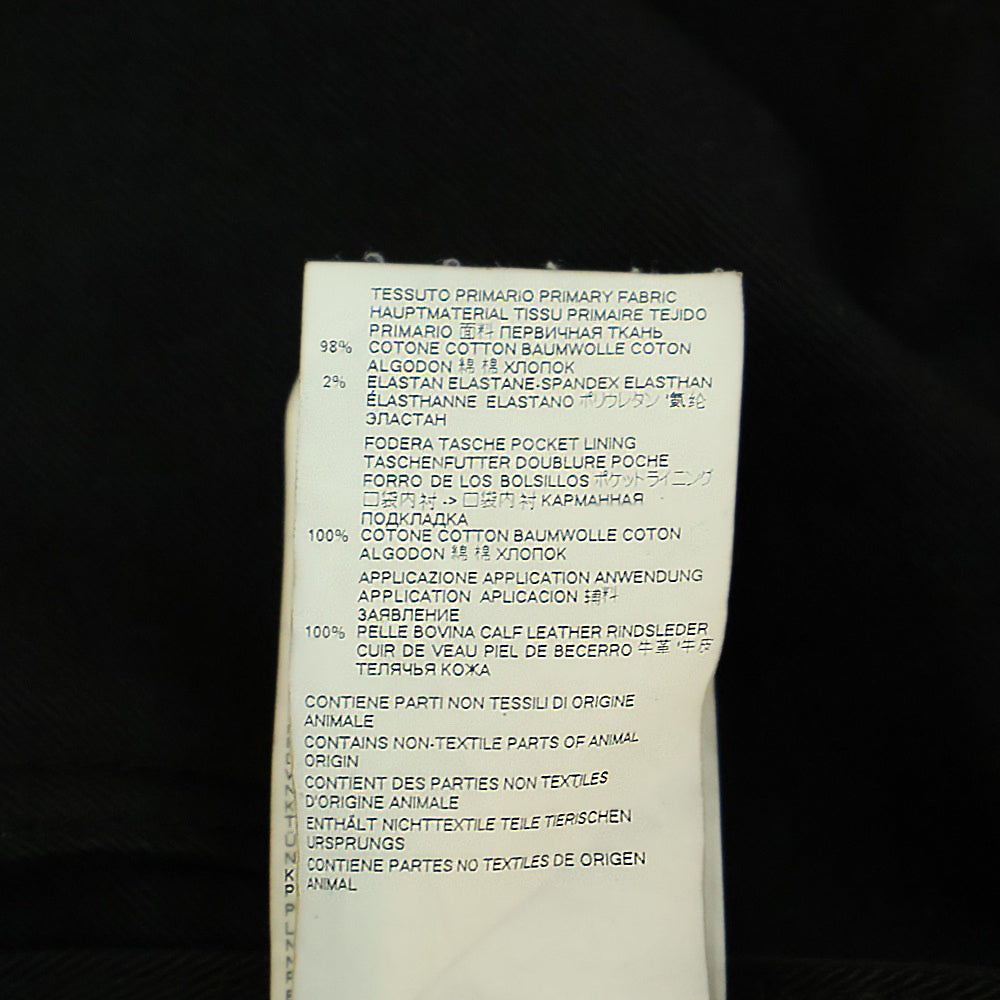 TESSUTO PRIMARIO PRIMARY FABRIC
HAUPTMATERIAL TISSU PRIMAIRE TEJIDO
PRIMARIO 面料 ПЕРВИЧНАЯ ТКАНЬ
98% COTONE COTTON BAUMWOLLE COTON
ALGODON 綿 棉 ХЛОПОК
2% ELASTAN ELASTANE-SPANDEX ELASTHAN
ÉLASTHANNE ELASTANO ポリウレタン '氨纶
ЭЛАСТАН
FODERA TASCHE POCKET LINING
TASCHENFUTTER DOUBLURE POCHE
FORRO DE LOS BOLSILLOS ポケットライニング
口袋内衬 -> 口袋内衬 КАРМАННАЯ
ПОДКЛАДКА
100% COTONE COTTON BAUMWOLLE COTON
ALGODON 綿 棉 ХЛОПОК
APPLICAZIONE APPLICATION ANWENDUNG
APPLICATION APLICACION 辅料
ЗАЯВЛЕНИЕ
100% PELLE BOVINA CALF LEATHER RINDSLEDER
CUIR DE VEAU PIEL DE BECERRO 牛革 '牛皮
ТЕЛЯЧЬЯ КОЖА
CONTIENE PARTI NON TESSILI DI ORIGINE
ANIMALE
CONTAINS NON-TEXTILE PARTS OF ANIMAL
ORIGIN
CONTIENT DES PARTIES NON TEXTILES
D'ORIGINE ANIMALE
ENTHÄLT NICHTTEXTILE TEILE TIERISCHEN
URSPRUNGS
CONTIENE PARTES NO TEXTILES DE ORIGEN
ANIMAL